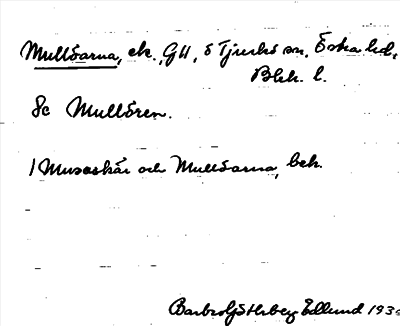 Mullöarna, ek., GH, ö Tjurkö sn. Östra hd.
Blek. l.
Se Mullören.
1 Musaskär och Mullöarna, bek.
Edlund 193